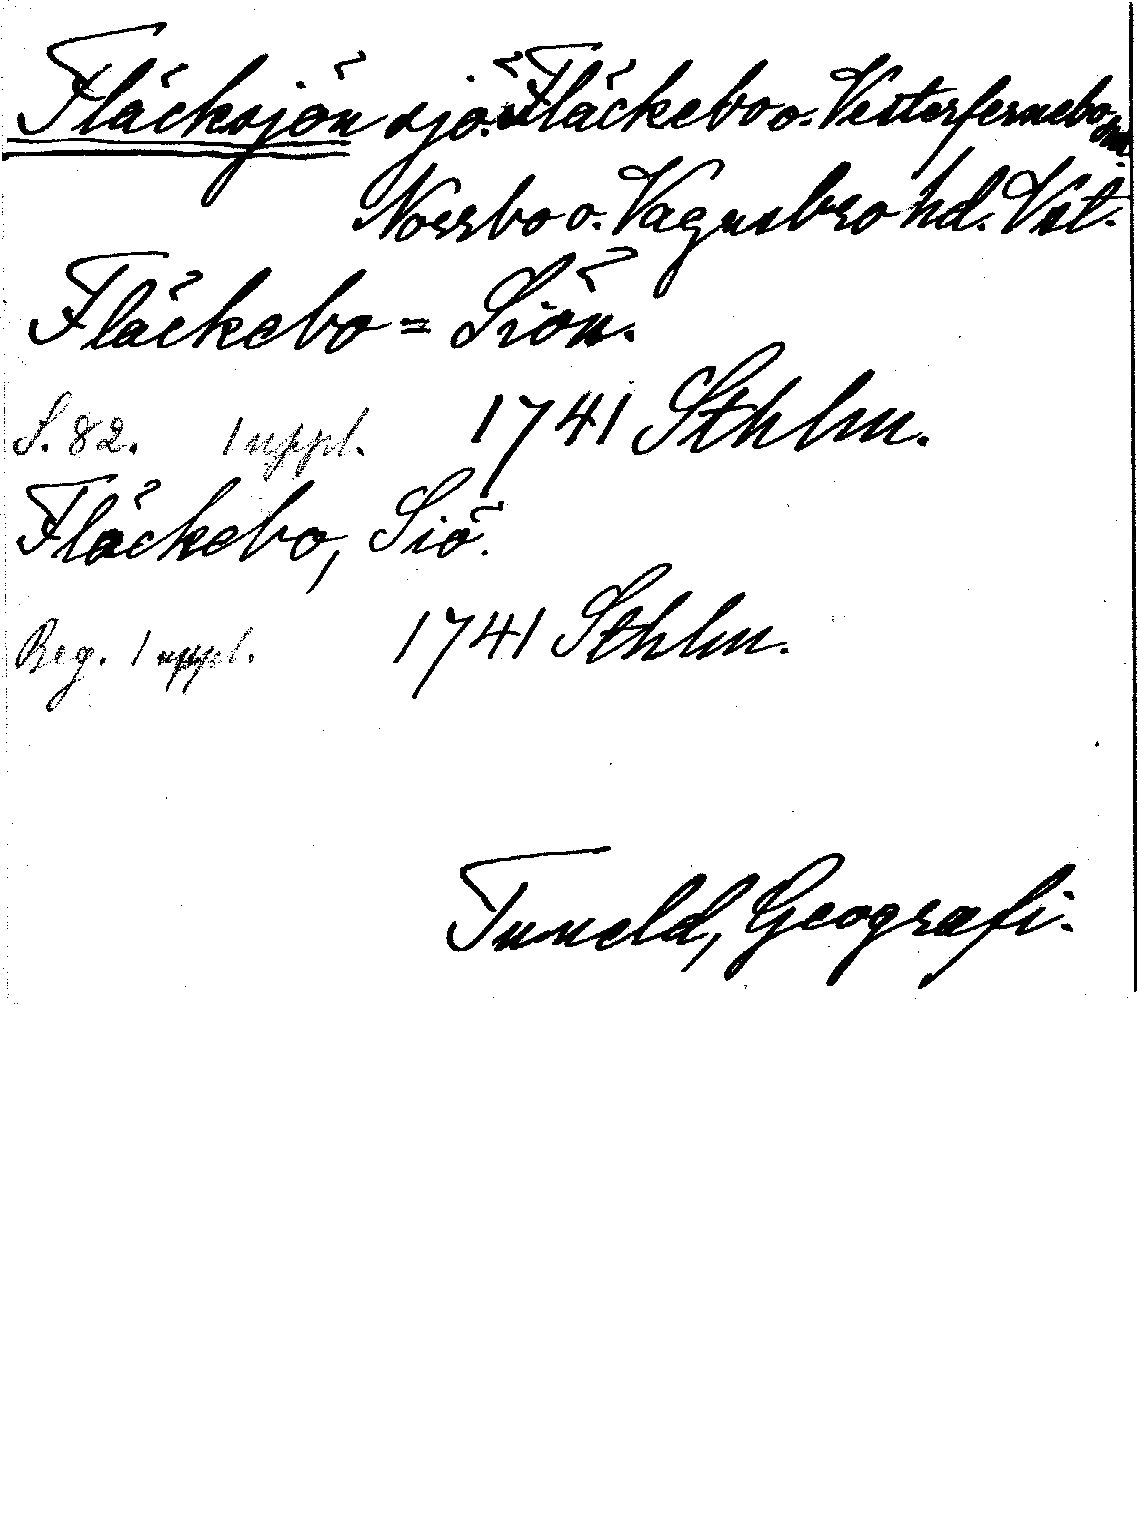 Fläcksjön sjö. Fläckebo o. Vesterfernebo snr.
Norrbo o. Vagnsbro hd. Vst.
Fläckebo = Siön.
S. 82. 1 uppl. 1741 Sthlm.
Fläckebo, Siö.
Reg. 1 uppl. 1741 Sthlm.
Tuneld, Geografi.